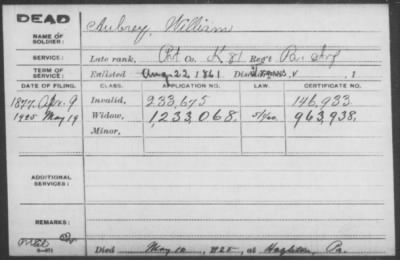 DEAD
NAME OF SOLDIER: Aubrey, William
SERVICE: Late rank, Pvt Co. K 81 Reg't Pa. Inf
TERM OF SERVICE: Enlisted Aug 22, 1861
DATE OF FILING. CLASS. APPLICATION NO. LAW. CERTIFICATE NO.
1877 Apr. 9 Invalid, 233,675 146,933
1925 May 19 Widow, 1,233,068 963,938
Minor,
ADDITIONAL SERVICES:
REMARKS:
Died May 10, 1925, at Hazleton, Pa.